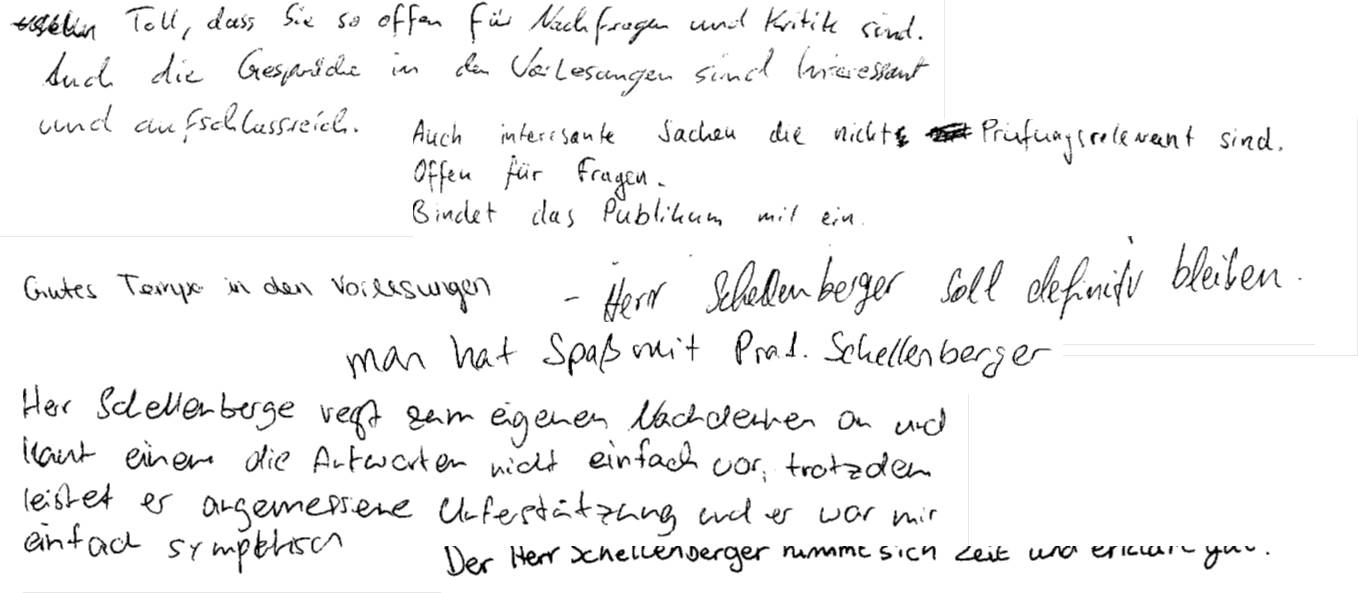 Toll, dass Sie so offen für Nachfragen und Kritik sind.
Auch die Gespräche in den Vorlesungen sind interessant
und aufschlussreich.
Auch interssante Sachen die nicht Prüfungsrelevant sind.
Offen für Fragen.
Bindet das Publikum mit ein.
Gutes Tempo in den Vorlesungen
- Herr Schellenberger soll definitiv bleiben.
man hat Spaß mit Prof. Schellenberger
Herr Schellenberge regt zum eigenen Nachdenken an und
kaut einem die Antworten nicht einfach vor, trotzdem
leistet er angemessene Unterstützung und er war mir
einfach symphtisch
Der Herr Schellenberger nimmt sich Zeit und erklärt gut.